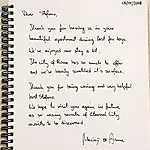 Dear Stefano,
Thank you for having us in your
beautiful apartment during last few days.
We've enjoyed our stay a lot.
The city of Rome has so much to offer
and we've barely scratched it's surface.
Thank you for being amazing and very helpful
host Stefano.
We hope to visit you again in future
as so many secrets of Eternal City
awaits to be discovered.